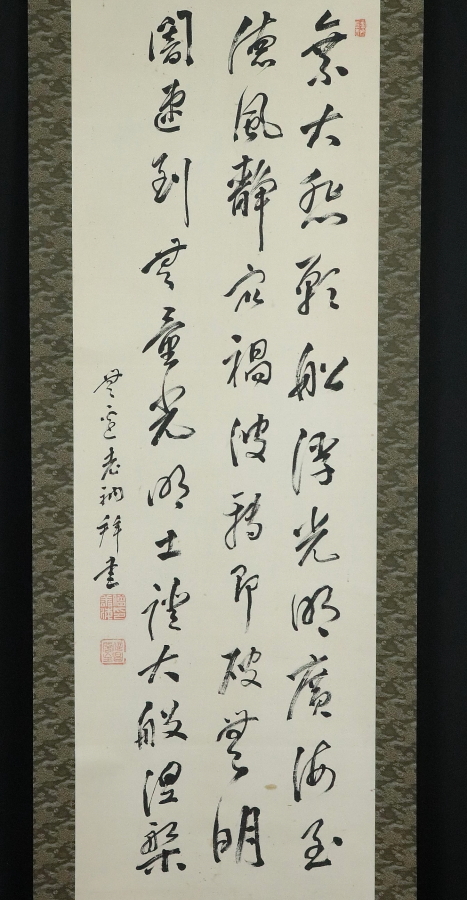 乗大悲願船浮光明廣海至
德風静衆禍波轉即破無明
闇速到無量光明土證大般涅槃
無老衲拜書